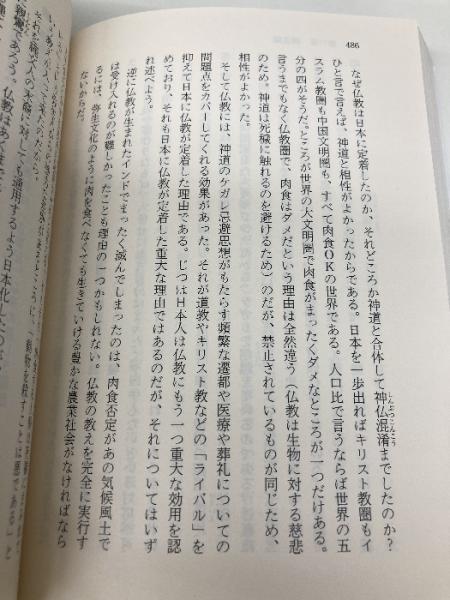 486
なぜ仏教は日本に定着したのか、それどころか神道と合体して神仏混淆までしたのか？
しんぶつこんこう
ひと言で言えば、神道と相性がよかったからである。日本を一歩出ればキリスト教圏もイ
スラム教圏も中国文明圏も、すべて肉食ＯＫの世界である。人口比で言うならば世界の五
分の四がそうだ。ところが世界の大文明圏で肉食がまったくダメなところが一つだけある。
言うまでもなく仏教圏で、肉食はダメだという理由は全然違う（仏教は生物に対する慈悲
のため。神道は死穢に触れるのを避けるため）のだが、禁止されているものが同じため、
相性がよかった。
そして仏教には、神道のケガレ忌避思想がもたらす頻繁な遷都や医療や葬礼についての
問題点をカバーしてくれる効果があった。それが道教やキリスト教などの「ライバル」を
抑えて日本に仏教が定着した理由である。じつは日本人は仏教にもう一つ重大な効用を認
めており、それも日本に仏教が定着した重大な理由ではあるのだが、それについてはいず
れ述べよう。
逆に仏教が生まれたインドでまったく滅んでしまったのは、肉食否定があの気候風土で
は受け入れるのが難しかったことも理由の一つかもしれない。仏教の教えを完全に実行す
るには、弥生文化のように肉を食べなくても生きていける豊かな農業社会がなければなら
ないからだ。
殺生を殺すことは悪である」と
も通用するよう日本化したのが、
であろう。仏教はあ